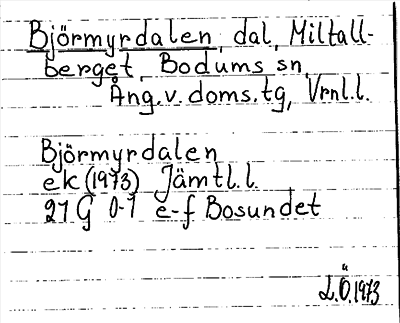 Björmyrdalen, dal, Miltall-
berget, Bodums sn,
Ång.v.doms.tg, Vrnl.l.
Björmyrdalen
ek (1973) Jämtl.l.
21 G 0-1 e-f Bosundet
L.Ö.1973